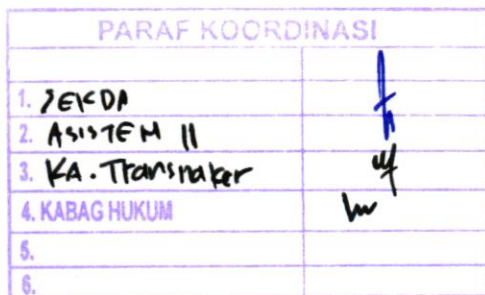 PARAF KOORDINASI
1. SEKDA
2. ASISTEM II
3. KA. Transnaker
4. KABAG HUKUM
5.
6.